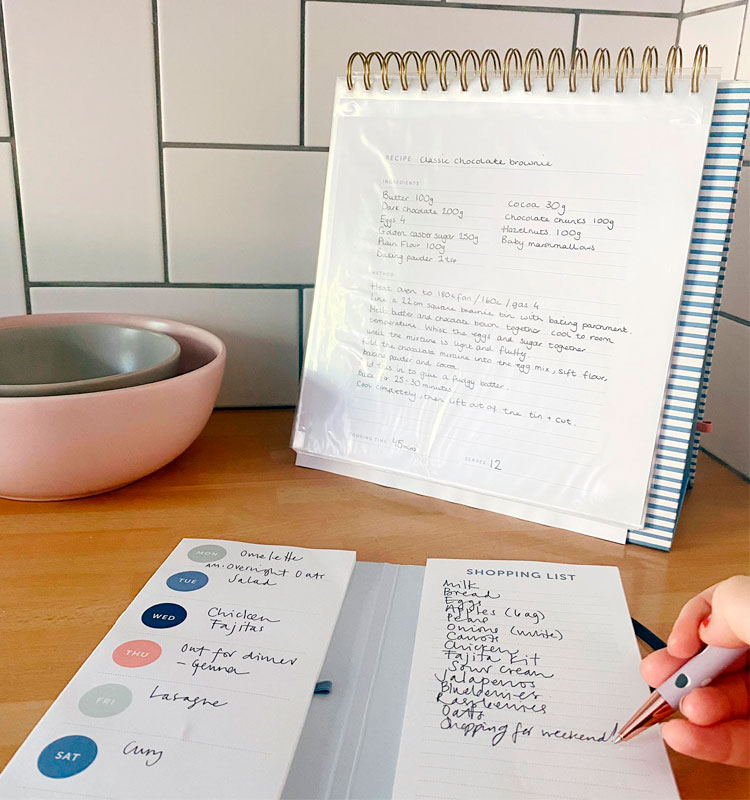 RECIPE Classic chocolate brownie
INGREDIENTS
Butter 100g
Dark chocolate 200g
Eggs 4
Golden caster sugar 250g
Plain Flour 100g
Baking powder 1 tsp
Cocoa 30g
Chocolate chunks 100g
Hazelnuts 100g
Baby marshmallows
METHOD
Heat oven to 180c fan / 160c / gas 4
Line a 22cm square brownie tin with baking parchment.
Melt butter and chocolate down together. Cool to room
temperature. Whisk the eggs and sugar together
until the mixture is light and fluffy.
Fold the chocolate mixture into the egg mix, sift flour,
baking powder and cocoa.
Fold this in to give a fudgy batter.
Bake for 25-30 minutes.
Cool completely, then lift out of the tin + cut.
COOKING TIME 45mins
SERVES 12
MON Omelette
AM: Overnight Oats
TUE Salad
WED Chicken
Fajitas
THU Out for dinner
- Gemma
FRI Lasagne
SAT Curry
SHOPPING LIST
Milk
Bread
Eggs
Apples (bag)
Pears
Onions (white)
Carrots
Chicken
Fajita Kit
Sour Cream
Jalapenos
Blueberries
Raspberries
Oats
Shopping for weekend!